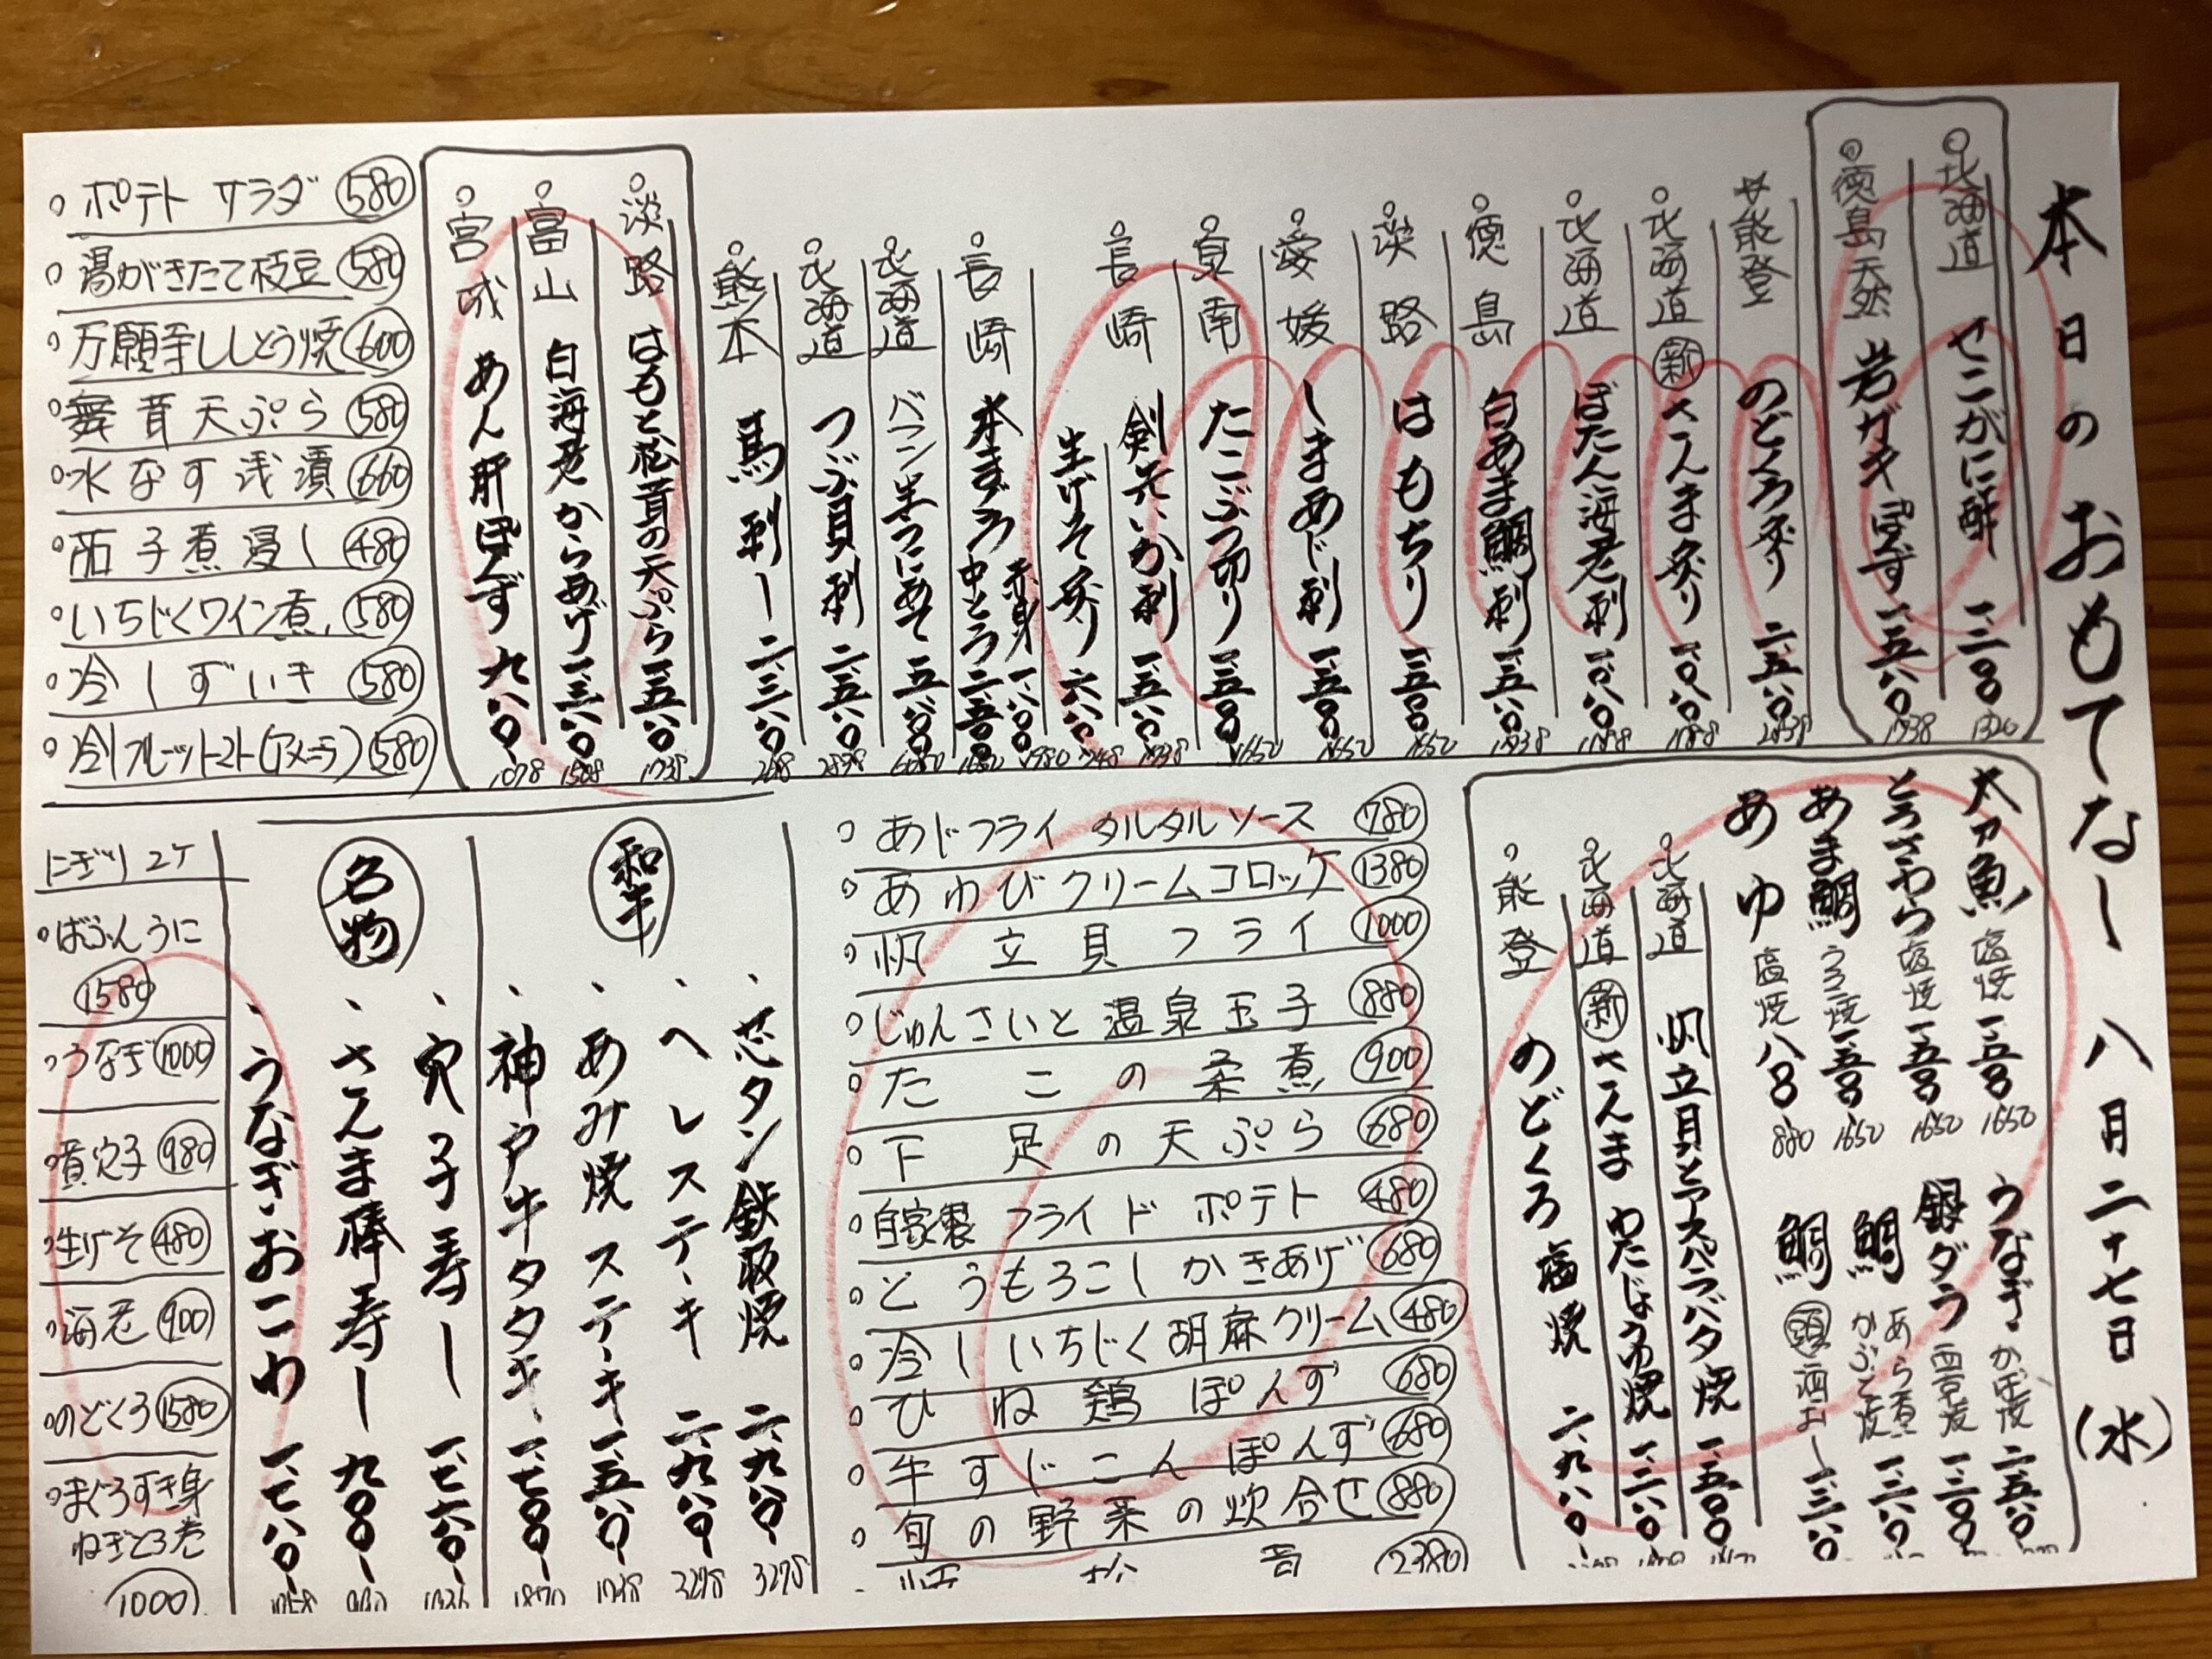 本日のおもてなし 八月二十七日(水)
北海道 せこがに酢 一、二〇〇 1320
徳島天然 岩ガキぽんず 一、五八〇 1738
能登 のどくろ炙り 二、五八〇 2838
北海道 新 さんま炙り 一、〇八〇 1188
北海道 ぼたん海老刺 一、〇八〇 1188
徳島 白あま鯛刺 一、五八〇 1738
淡路 はもちり 一、五〇〇 1650
愛媛 しまあじ刺 一、五〇〇 1650
泉南 たこぶつ切り 一、五〇〇 1650
長崎 剣先いか刺 一、五八〇 1738
生げそ炙り 六八〇 748
長崎 本まぐろ 赤身 一、八〇〇 1980
中とろ
北海道 バフン生うにあて
北海道 つぶ貝刺 二、五八〇 2838
熊本 馬刺し 二、三八〇
淡路 はもと松茸の天ぷら 一、五八〇 1738
富山 白海老からあげ 一、三八〇
宮城 あん肝ぽんず 九八〇 1078
ポテトサラダ 580
湯がきたて枝豆 580
万願寺ししとう焼 600
舞茸天ぷら 580
水なす浅漬 660
茄子煮浸し 480
いちじくワイン煮 580
冷しずいき 580
冷しフルーツトマト(アメーラ) 580
太刀魚 塩焼 一、五〇〇 1650
とろさわら 塩焼 一、五〇〇 1650
あま鯛 うろこ焼 一、五〇〇 1650
あゆ 塩焼 八〇〇 880
うなぎ かば焼 二、五八〇
銀ダラ 西京焼 一、三〇〇
鯛 あら煮 かぶと焼 一、二八〇
鯛 頭 酒むし 一、三八〇
北海道 帆立貝とアスパラバタ焼 一、五〇〇
北海道 新 さんま わたじょうゆ焼 一、二八〇
能登 のどくろ 塩焼 二、九八〇
あじフライ タルタルソース 780
あわびクリームコロッケ 1380
帆立貝フライ 1000
じゅんさいと温泉玉子 880
たこの柔煮 900
下足の天ぷら 680
自家製フライドポテト 480
とうもろこしかきあげ 680
冷しいちじく胡麻クリーム 480
ひね鶏ぽんず 680
牛すじこんぽんず 680
旬の野菜の炊合せ 880
焼松茸 2380
和牛
芯タン鉄板焼 二、九八〇 3278
ヘレステーキ 二、九八〇 3278
あみ焼ステーキ 一、五八〇 1738
神戸牛タタキ 一、七〇〇 1870
名物
穴子寿し 一、七六〇
さんま棒寿し 九〇〇
うなぎおこわ 一、七八〇
にぎり 2ケ
ばふんうに
1580
うなぎ 1000
煮穴子 980
生げそ 480
海老 900
のどくろ 1580
まぐろすき身
ねぎとろ巻
1000